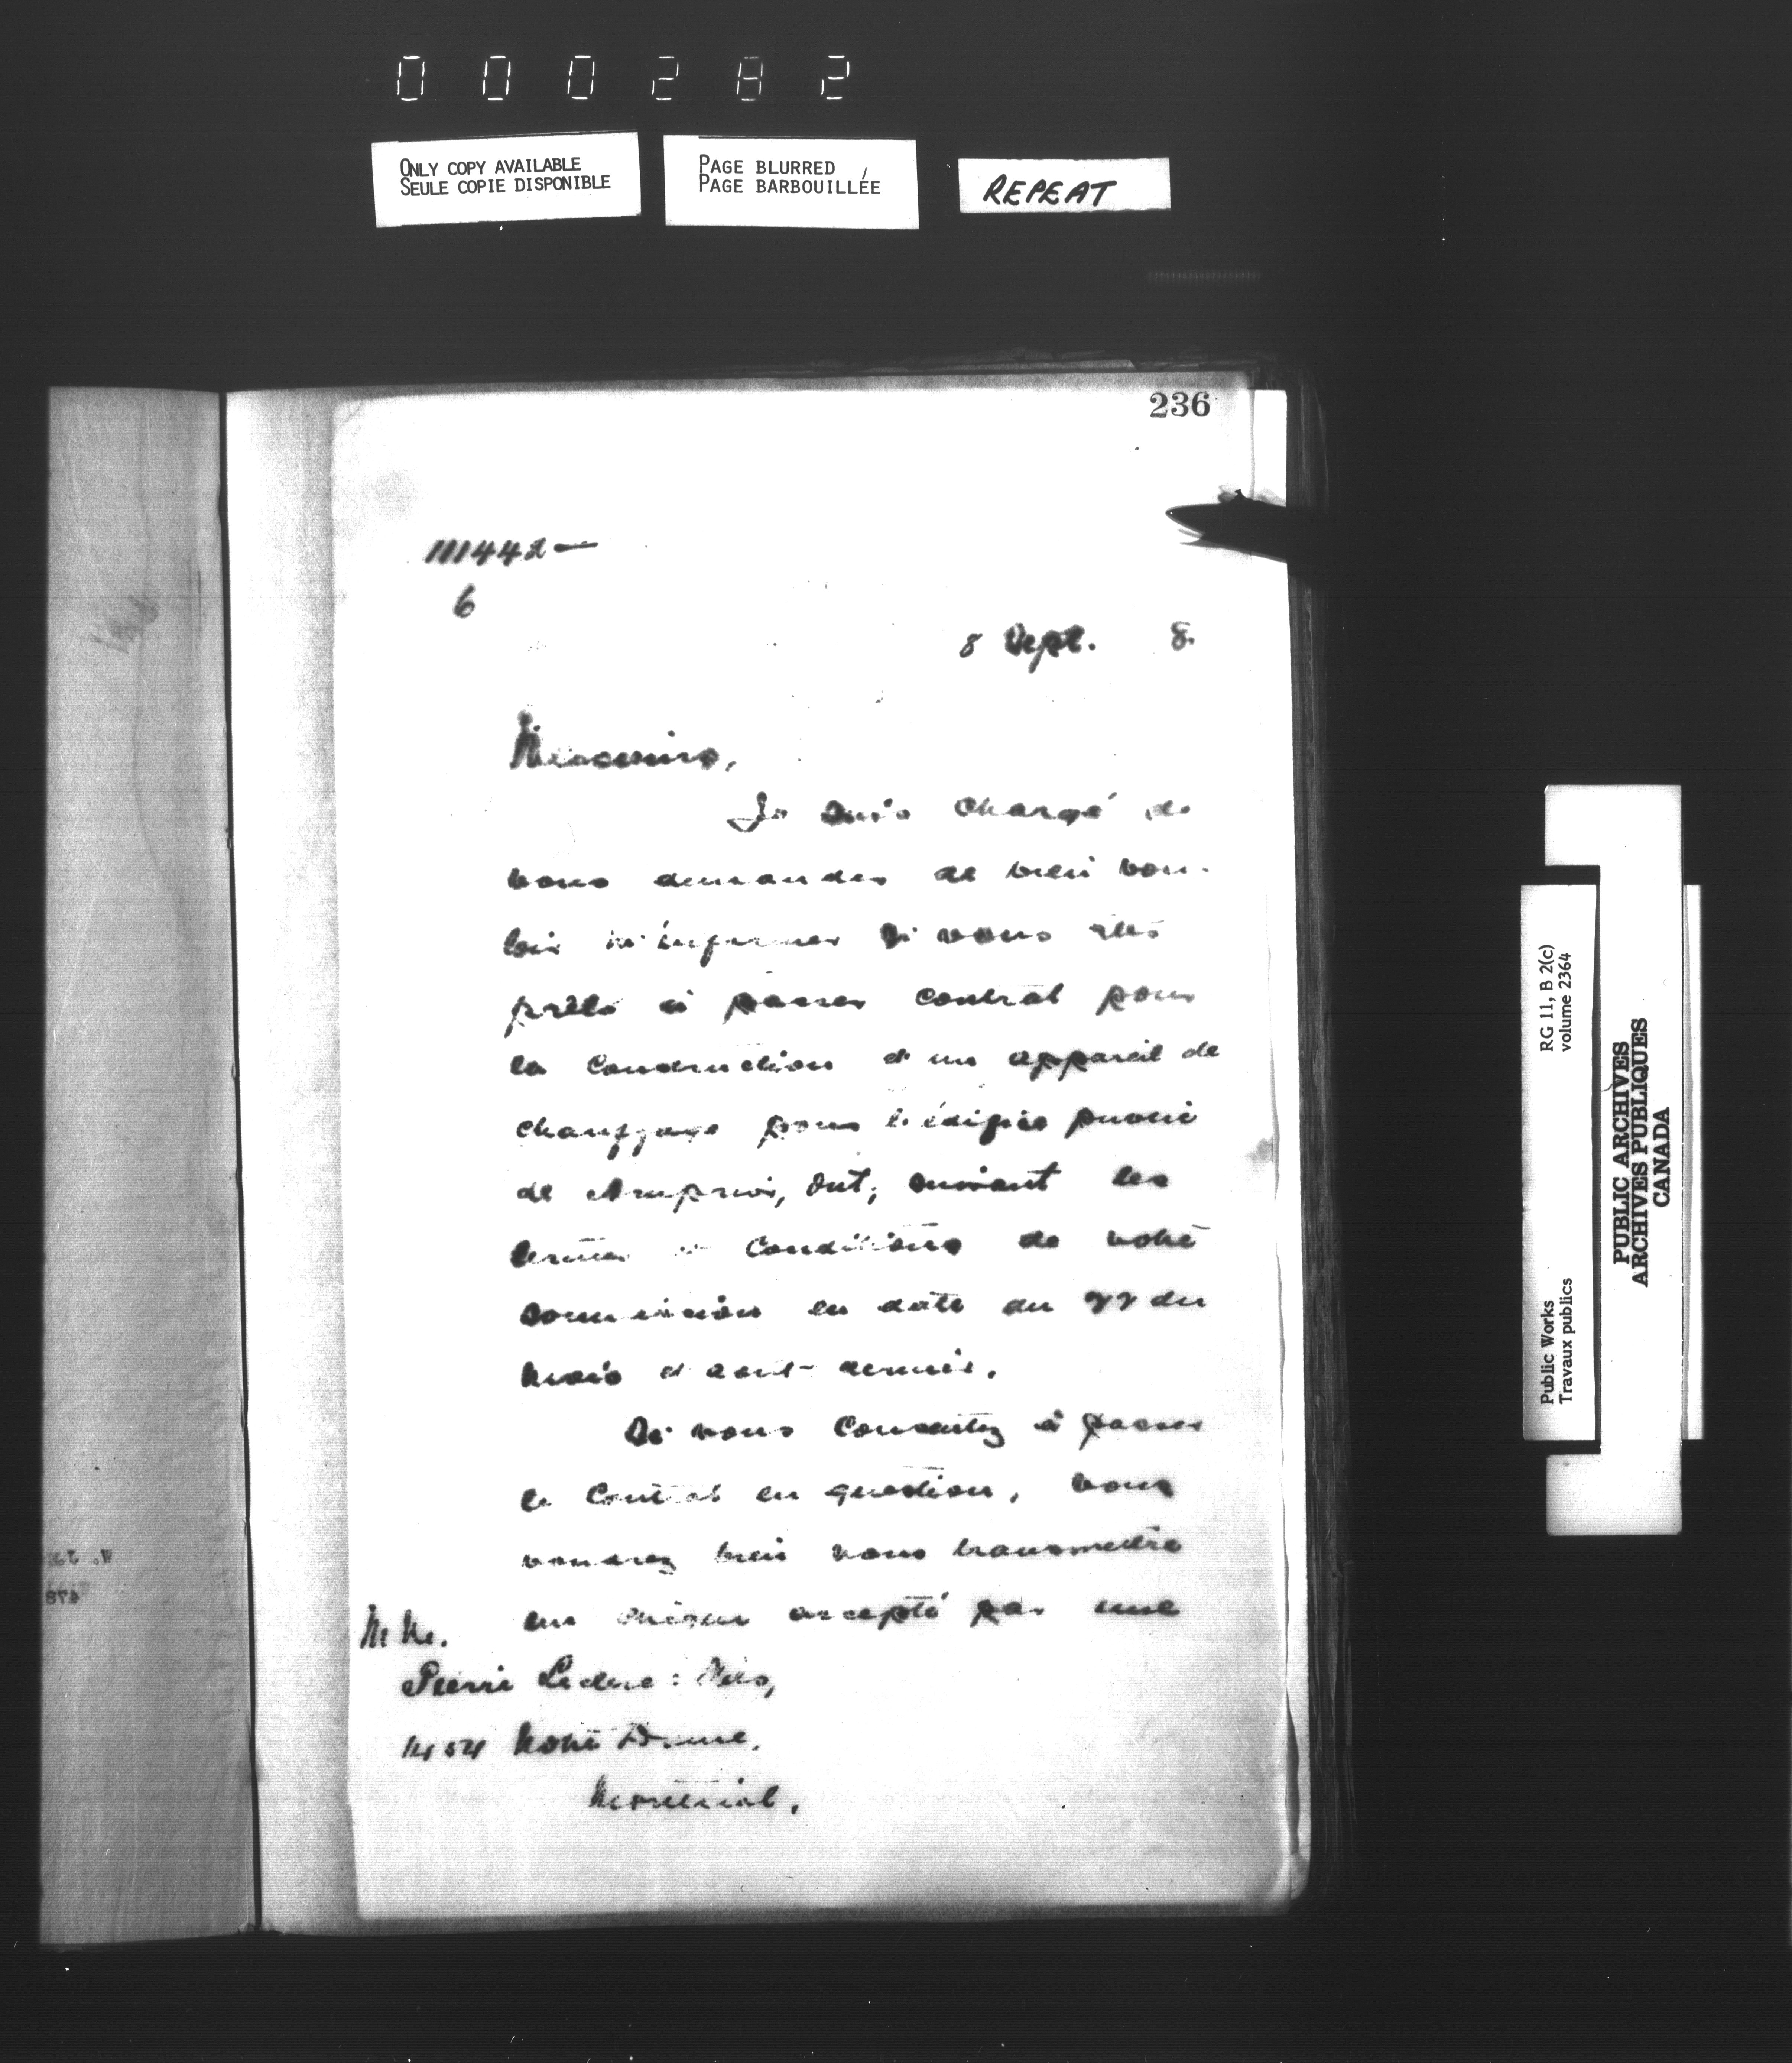 000282
ONLY COPY AVAILABLE
SEULE COPIE DISPONIBLE
PAGE BLURRED
PAGE BARBOUILLÉE
REPEAT
236
111442—
6
8 Sept. 8.
Messieurs,
Je suis chargé de
vous demander de bien vou-
loir m'informer si vous êtes
prêts à passer contrat pour
la construction d'un appareil de
chauffage pour l'édifice public
de Arnprior, Ont, suivant les
termes et conditions de votre
soumission en date du 22 du
mois d'août dernier.
Si vous consentez à passer
le contrat en question, vous
voudrez bien nous transmettre
un chèque accepté par une
M M.
Pierre Leduc : Fils,
Notre Dame,
Montréal.
Public Works
Travaux publics
RG 11, B 2(c)
volume 2364
PUBLIC ARCHIVES
ARCHIVES PUBLIQUES
CANADA